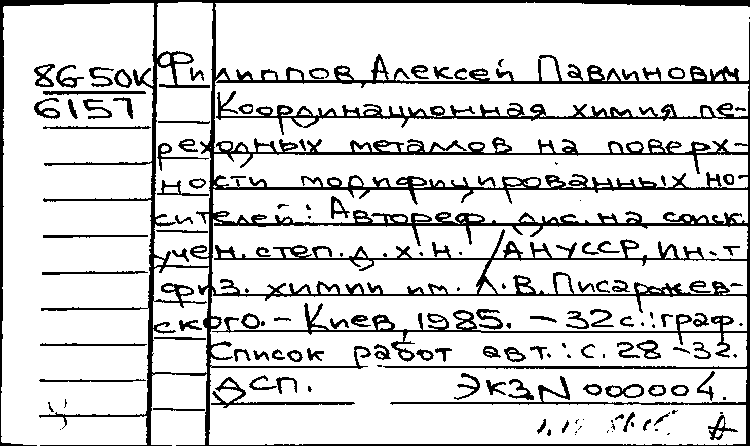 86-50К Филиппов, Алексей Павлинович
6157 Координационная химия пе-
реходных металлов на поверх-
ности модифицированных но-
сителей: Автореф. дис. на соиск.
учен. степ. д.х.н. / АН УССР, Ин-т
физ. химии им. Л.В. Писаржев-
ского. - Киев, 1985. - 32 с.: граф.
Список работ авт.: с. 28-32.
ДСП. Экз. N 000004.